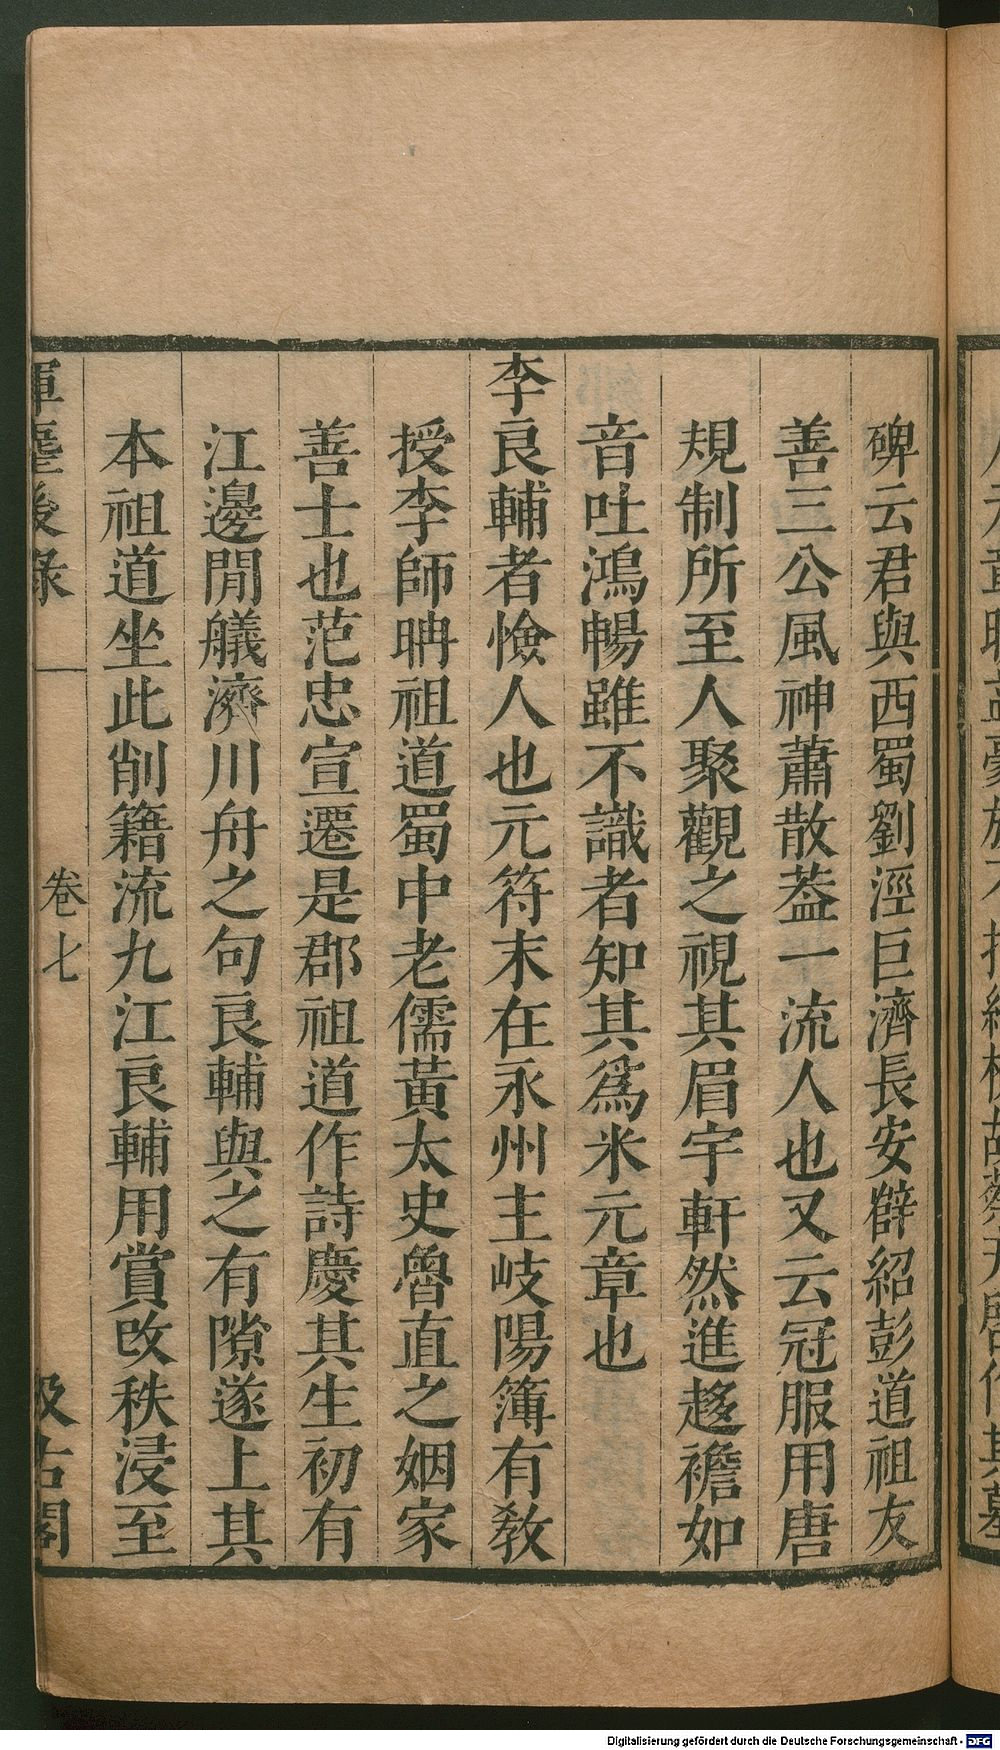 碑云君與西蜀劉涇巨濟長安薛紹彭道祖友
善三公風神蕭散葢一流人也又云冠服用唐
規制所至人聚觀之視其眉宇軒然進趍襜如
音吐鴻暢雖不識者知其爲米元章也
李良輔者憸人也元符末在永州主岐陽簿有敎
授李師聃祖道蜀中老儒黃太史魯直之姻家
善士也范忠宣遷是郡祖道作詩慶其生初有
江邊閒艤濟川舟之句良輔與之有隙遂上其
本祖道坐此削籍流九江良輔用賞改秩浸至
揮麈後錄
卷七
汲古閣
Digitalisierung gefördert durch die Deutsche Forschungsgemeinschaft - DFG